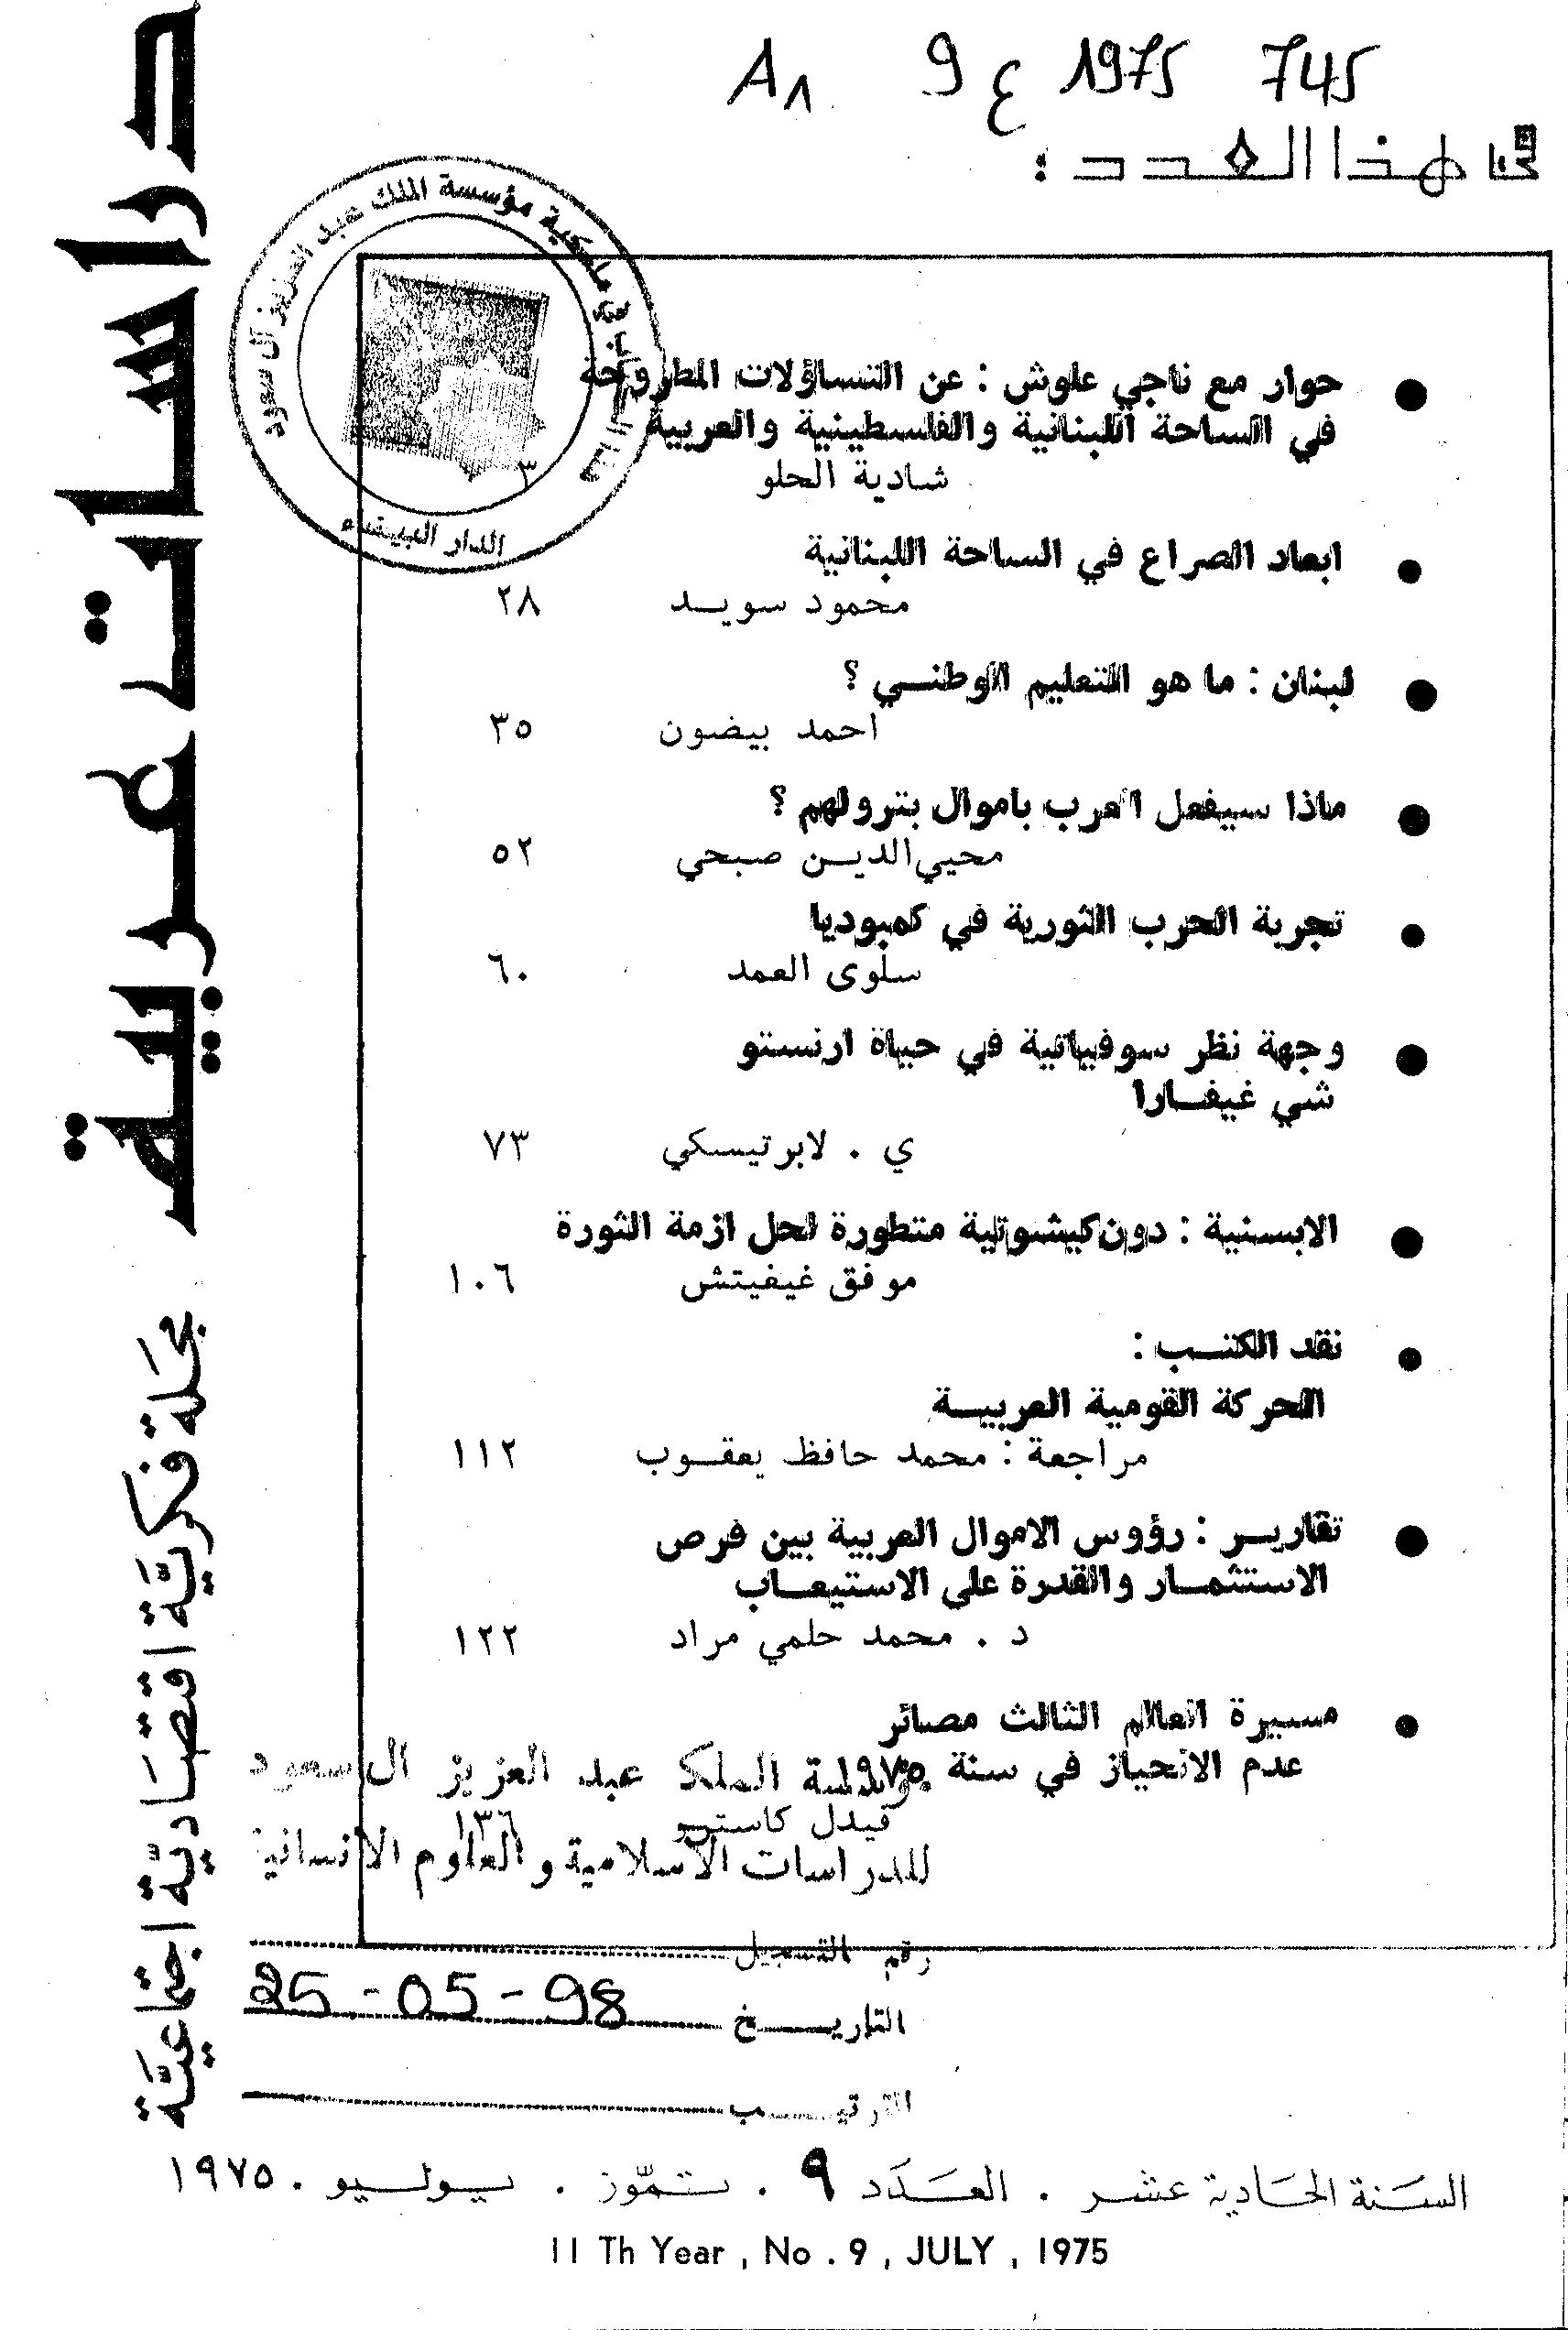 745 1975 ع 9 A1
في هذا العدد :
دراسات عربية
مجلة فكرية اقتصادية اجتماعية
ملكية مؤسسة الملك عبد العزيز آل سعود
الدار البيضاء
● حوار مع ناجي علوش : عن التساؤلات المطروحة
في الساحة اللبنانية والفلسطينية والعربية
شادية الحلو ٣
● ابعاد الصراع في الساحة اللبنانية
محمود سويـد ٢٨
● لبنان : ما هو التعليم الوطنـي ؟
احمد بيضون ٣٥
● ماذا سيفعل العرب باموال بترولهم ؟
محيي الديـن صبحي ٥٢
● تجربة الحرب الثورية في كمبوديا
سلوى العمد ٦٠
● وجهة نظر سوفياتية في حياة ارنستو
شي غيفـارا
ي . لابرتيسكي ٧٣
● الابسنية : دون كيشوتية متطورة لحل ازمة الثورة
موفق غيفيتش ١٠٦
● نقد الكتـب :
الحركة القومية العربيـة
مراجعة : محمد حافظ يعقـوب ١١٢
● تقاريـر : رؤوس الاموال العربية بين فرص
الاستثمـار والقدرة على الاستيعـاب
د . محمد حلمي مراد ١٢٢
● مسيرة العالم الثالث مصائر
عدم الانحياز في سنة ١٩٧٥
فيدل كاسترو ١٣٦
مؤسسة الملك عبد العزيز ال سعود
للدراسات الاسلامية و العلوم الانسانية
رقم التسجيل
التاريـخ 25-05-98
الترتيـب
السنة الحادية عشر . العدد ٩ . تموز . يوليو . ١٩٧٥
11 Th Year , No . 9 , JULY , 1975